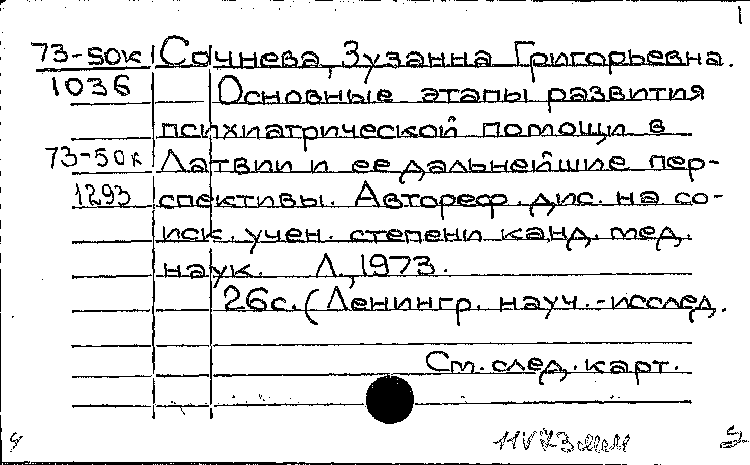 1
73-50к Сочнева, Зузанна Григорьевна.
1036 Основные этапы развития
психиатрической помощи в
73-50к Латвии и ее дальнейшие пер-
1293 спективы. Автореф. дис. на со-
иск. учен. степени канд. мед.
наук. Л., 1973.
26с. (Ленингр. науч.-исслед.
См. след. карт.